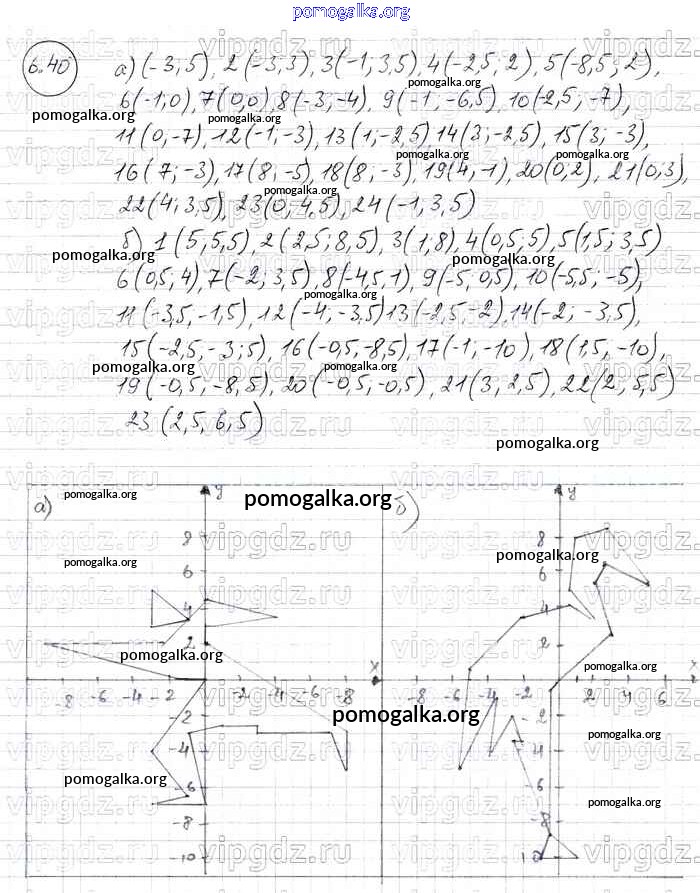 pomogalka.org
6.40 а) (-3; 5), 2 (-3; 3), 3 (-1; 3,5), 4 (-2,5; 2), 5 (-8,5; 2),
6 (-1; 0), 7 (0,0), 8 (-3; -4), 9 (-1; -6,5), 10 (-2,5; -7),
11 (0, -7), 12 (-1; -3), 13 (1; -2,5) 14 (3; -2,5), 15 (3; -3),
16 (7; -3), 17 (8; -5), 18 (8; -3), 19 (4, -1), 20 (0,2), 21 (0,3),
22 (4; 3,5), 23 (0; 4,5), 24 (-1, 3,5)
б) 1 (5; 5,5), 2 (2,5; 8,5), 3 (1; 8), 4 (0,5; 5), 5 (1,5; 3,5)
6 (0,5; 4), 7 (-2; 3,5), 8 (-4,5, 1), 9 (-5, 0,5), 10 (-5,5; -5),
11 (-3,5, -1,5), 12 (-4; -3,5) 13 (-2,5, -2), 14 (-2; -3,5),
15 (-2,5, -3;5), 16 (-0,5, -8,5), 17 (-1, -10), 18 (1,5, -10),
19 (-0,5, -8,5), 20 (-0,5, -0,5), 21 (3, 2,5), 22 (2, 5,5)
23 (2,5, 6,5)
pomogalka.org
а) y
8
6
4
2
x
-8 -6 -4 -2 -2 -4 -6 -8
-2
-4
-6
-8
-10
б) y
8
6
4
2
x
-8 -6 -4 -2 2 4 6
-2
-4
-6
-8
10